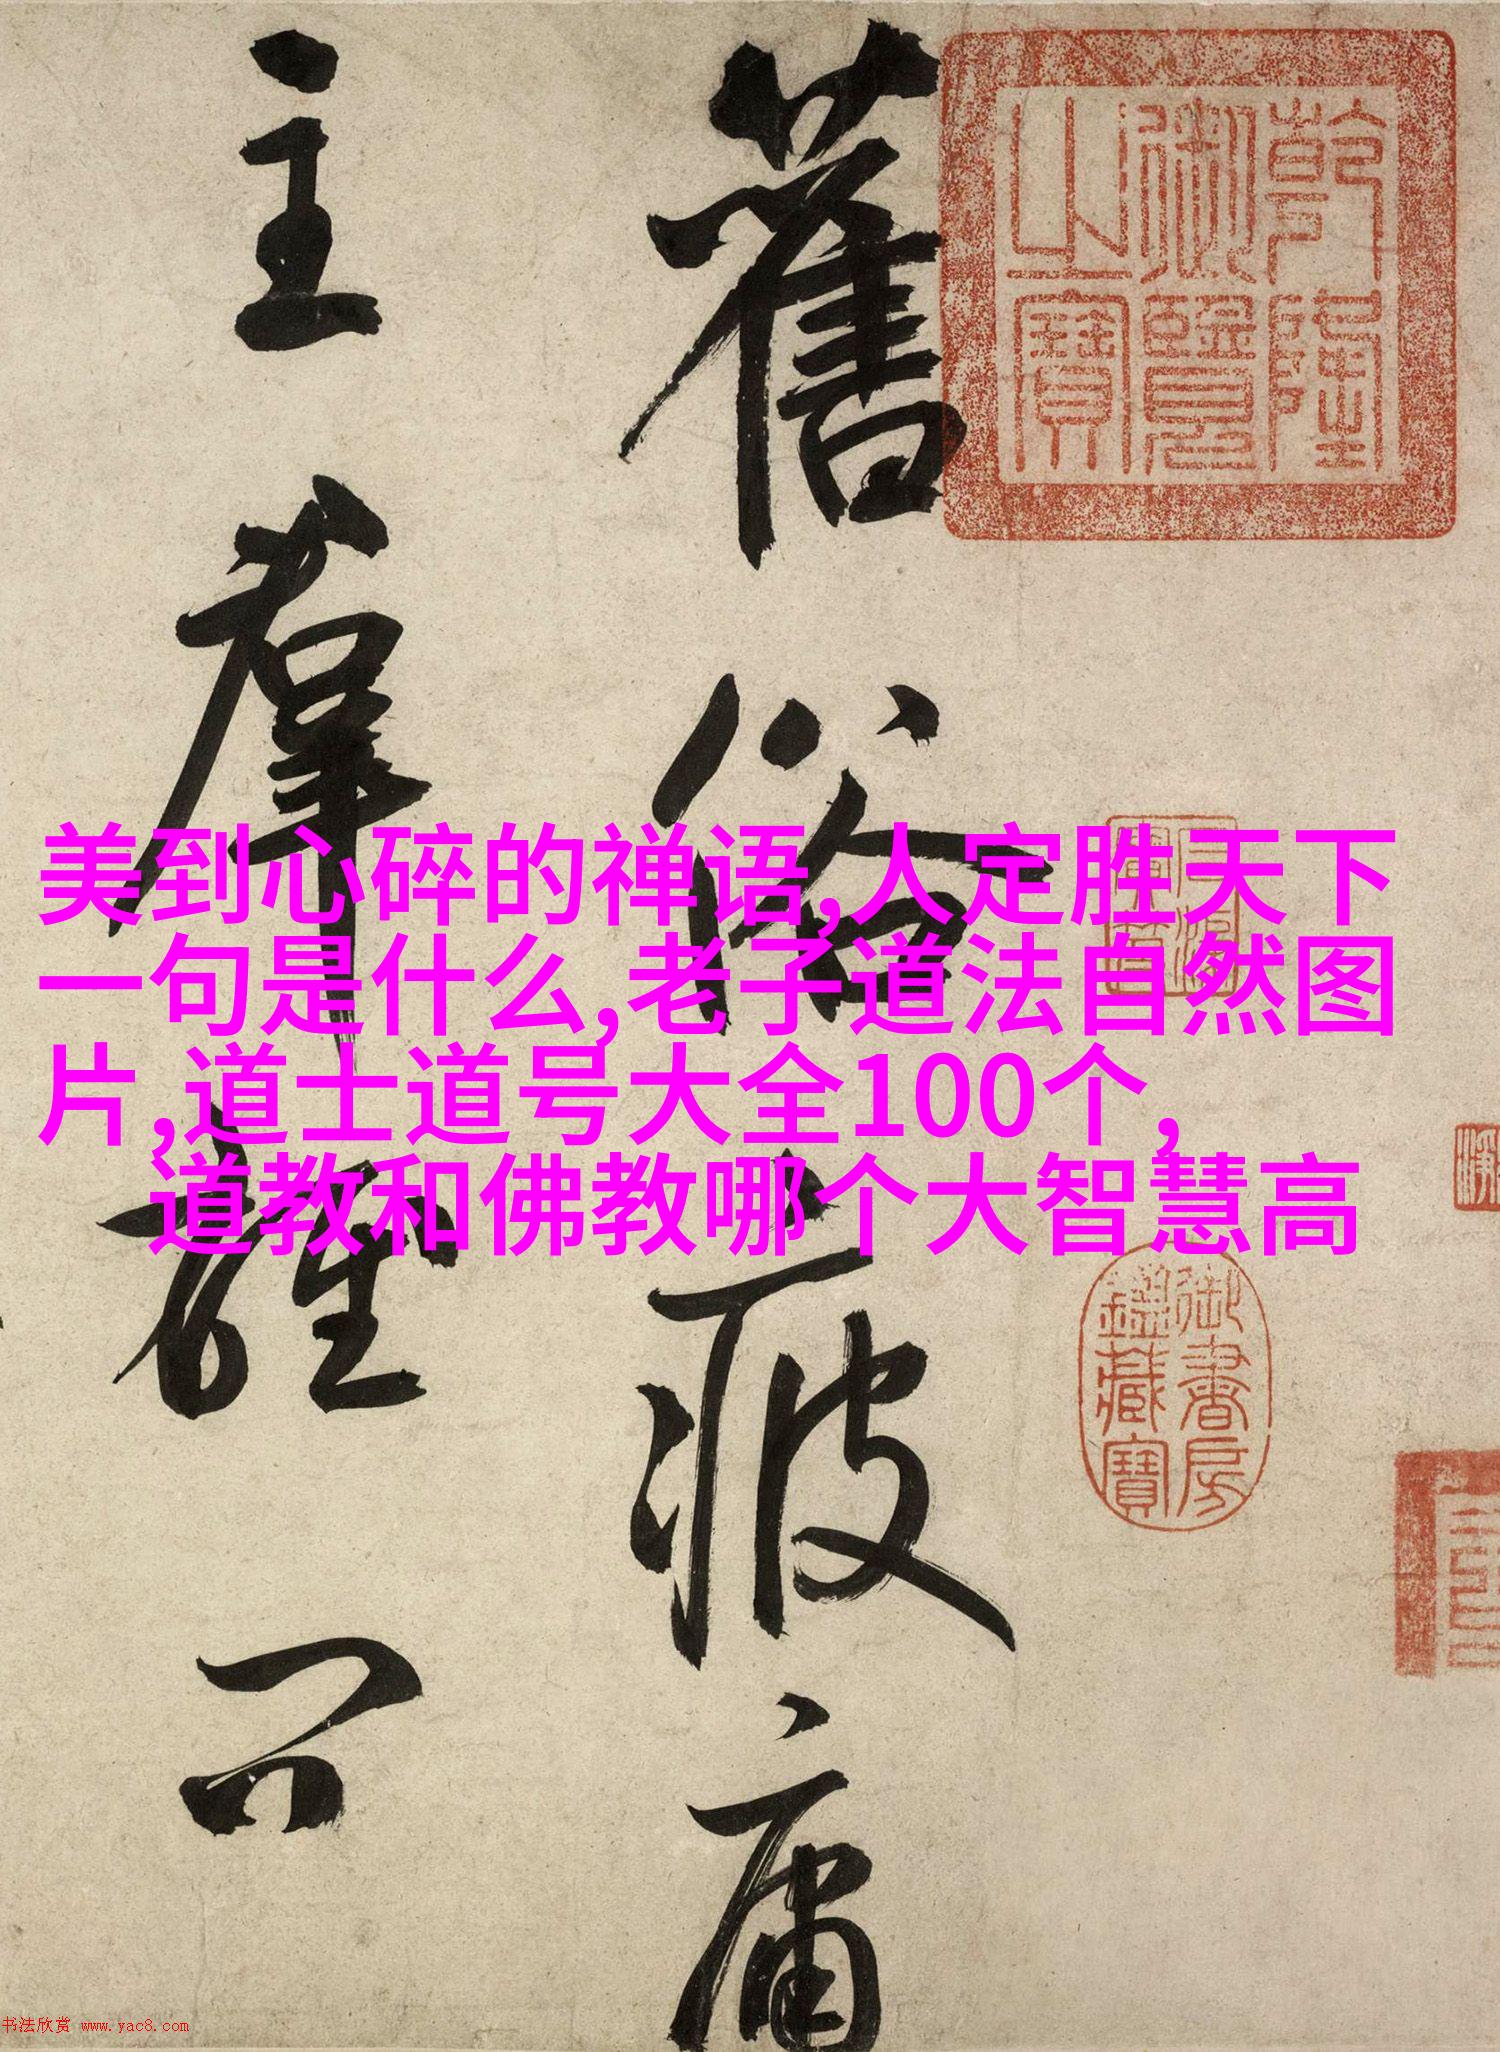 乾隆
御覽
之寶
舊俗疲庸
主羣雄問
美到心碎的禅语,人定胜天下
一句是什么,老子道法自然图
片,道士道号大全100个,
道教和佛教哪个大智慧高
御書房
鑑藏寶
书法欣赏 www.yac8.com